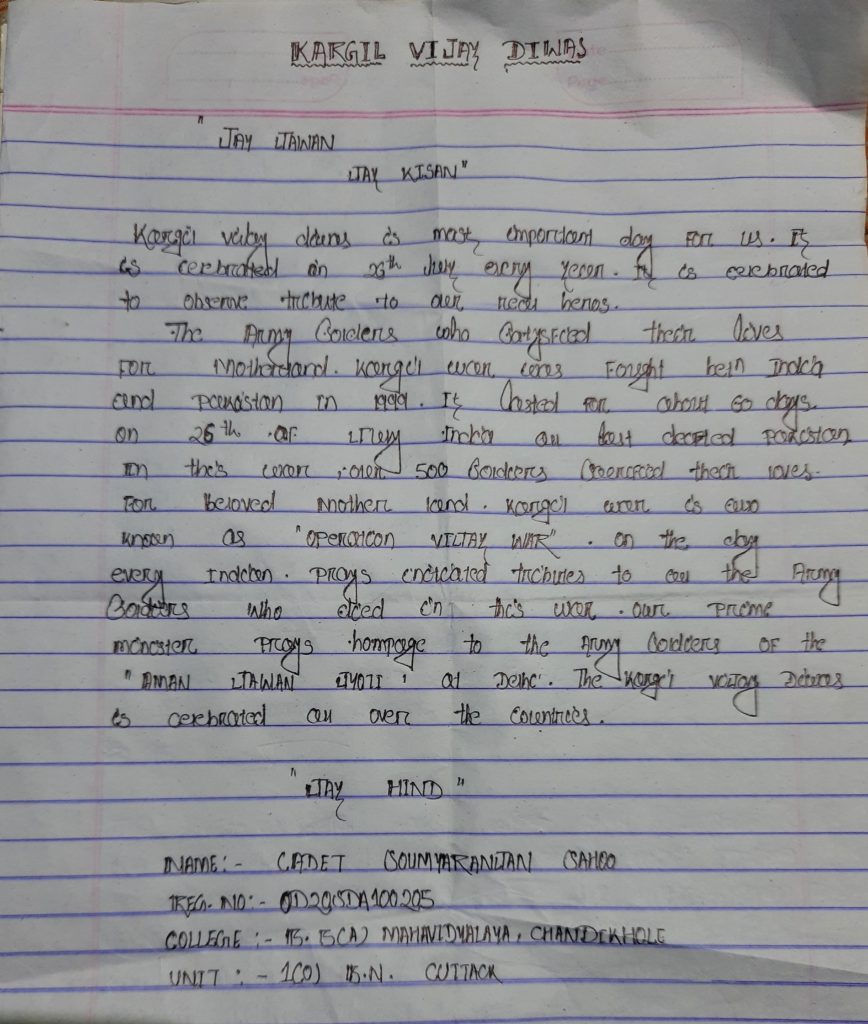 KARGIL VIJAY DIWAS
"JAY JAWAN
JAY KISAN"
Kargil vijay diwas is most important day For us. It
is celebrated in 26th July every year. It is celebrated
to observe tribute to our real heros.
The Army Soldiers who their lives
For Motherland. Kargil war was Fought betn India
and pakistan in 1999. It lasted For about 60 days.
on 26th OF July India at last pakistan
In this war, over 500 Soldiers their lives.
For Beloved Mother land. Kargil war is also
known as "OPERATION VIJAY WAR". on the day
every Indian. prays tributes to all the Army
Soldiers Who died in this war. our prime
minister prays hompage to the Army Soldiers OF the
"AMAR JAWAN JYOTI" at Delhi. The Kargil vijay Diwas
is celebrated all over the Countries.
"JAY HIND"
NAME:- CADET SOUMYARANJAN SAHOO
REG. NO:- OD20SDA100205
COLLEGE:- B.B(A) MAHAVIDYALAYA, CHANDIKHOLE
UNIT:- 1(O) B.N. CUTTACK